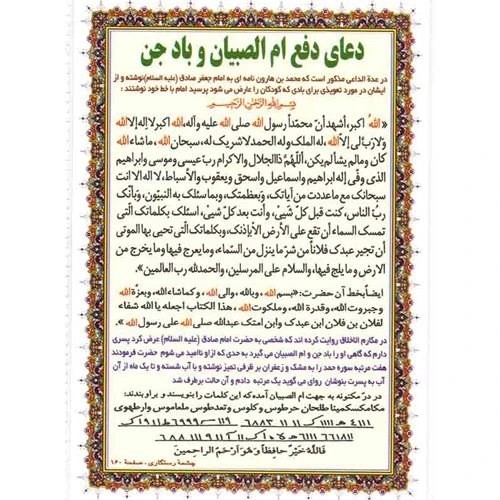 دعای دفع ام الصبیان و باد جن
در عدة الداعی مذکور است که محمد بن هارون نامه ای به امام جعفر صادق (علیه السلام)نوشته و از
ایشان در مورد تعویذی برای بادی که کودکان را عارض می شود پرسید امام با خط خود نوشتند :
بسم الله الرحمن الرحیم
« الله اکبر، أشهد أنّ محمّداً رسول الله صلی الله علیه وآله، الله اکبر لااله إلا الله
ولا ربّ لی إلا الله ، له الملک وله الحمد لاشریک له، سبحان الله ، ماشاء الله
کان ومالم یشألم یکن، اللّهمّ ذاالجلال والاکرام ربّ عیسی وموسی وابراهیم
الذی وفّی إله ابراهیم واسماعیل واسحق ویعقوب والأسباط، لا اله الا انت
سبحانک مع ماعددت من آیاتک، وبعظمتک، وبماسئلک به النبیّون، وبأنّک
ربّ الناس، کنت قبل کلّ شیئ، وأنت بعد کلّ شیئ، اسئلک بکلماتک الّتی
تمسک السماء أن تقع علی الأرض الاباذنک، وبکلماتک الّتی تحیی بهاالموتی
أن تجیر عبدک فلاناً من شرّ ما ینزل من السّماء، ومایعرج فیها وما یخرج من
الارض وما یلج فیها، والسلام علی المرسلین، والحمدلله رب العالمین».
ایضاً بخط آن حضرت: «بسم الله ، وبالله ، والی الله ، وکماشاءالله ، وبعزّة الله
وجبروت الله ، وقدرة الله ، وملکوت الله ، هذا الکتاب اجعله یا الله شفاء
لفلان بن فلان ابن عبدک وابن امتک عبدالله صلی الله علی رسول الله ».
در مکارم الاخلاق روایت کرده اند که شخصی به حضرت امام صادق (علیه السلام) عرض کرد پسری
دارم که گاهی او را باد جن و ام الصبیان می گیرد به حدی که از او ناامید می شوم حضرت فرمودند
هفت مرتبه سوره حمد را به مشک و زعفران بر ظرفی تمیز نوشته و با آب شسته و تا یک ماه از آن
آب به پسرت بنوشان روای می گوید یک مرتبه دادم و آن حالت برطرف شد
در در مکنونه به جهت ام الصبیان آمده که این کلمات را بنویسند و بر او بندند:
فالله خیر حافظا وهو ارحم الراحمین
چشمه رستگاری . صفحة ١٦٠